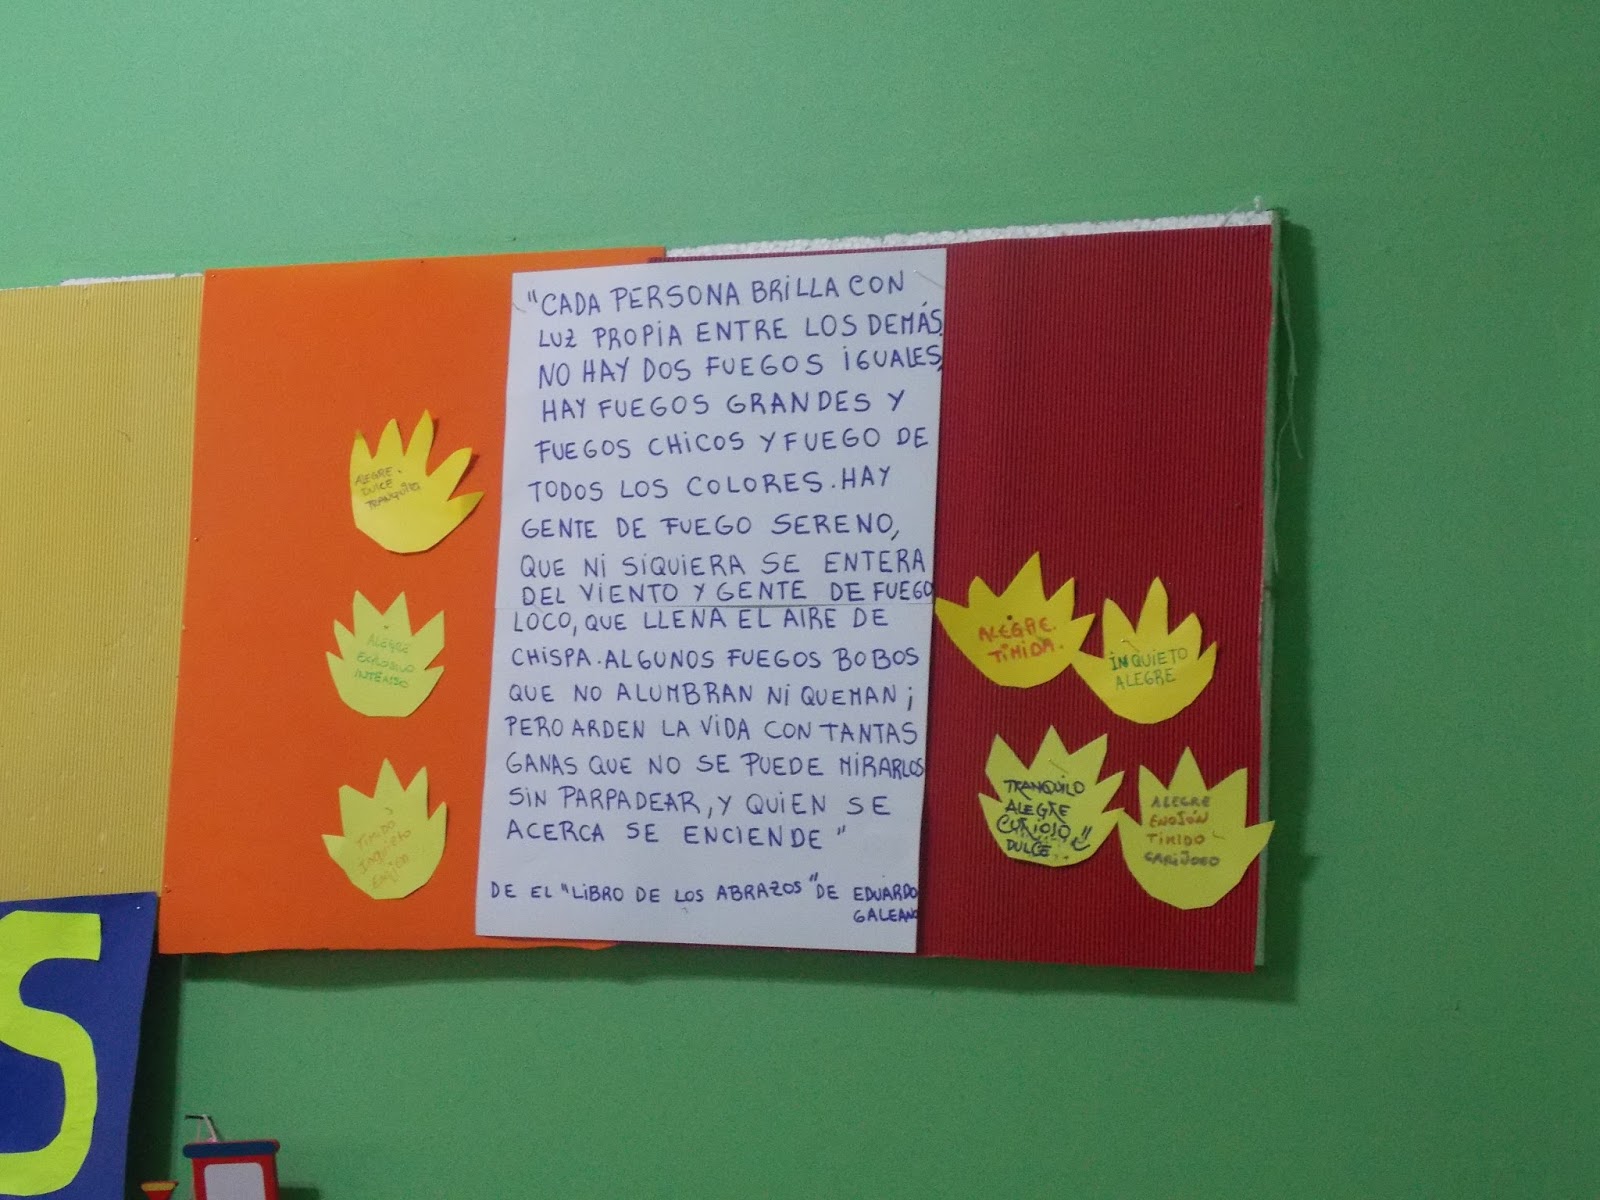 "CADA PERSONA BRILLA CON
LUZ PROPIA ENTRE LOS DEMÁS.
NO HAY DOS FUEGOS IGUALES,
HAY FUEGOS GRANDES Y
FUEGOS CHICOS Y FUEGO DE
TODOS LOS COLORES. HAY
GENTE DE FUEGO SERENO,
QUE NI SIQUIERA SE ENTERA
DEL VIENTO Y GENTE DE FUEGO
LOCO, QUE LLENA EL AIRE DE
CHISPA. ALGUNOS FUEGOS BOBOS
QUE NO ALUMBRAN NI QUEMAN;
PERO ARDEN LA VIDA CON TANTAS
GANAS QUE NO SE PUEDE MIRARLOS
SIN PARPADEAR, Y QUIEN SE
ACERCA SE ENCIENDE"
DE EL "LIBRO DE LOS ABRAZOS" DE EDUARDO
GALEANO
ALEGRE.
DULCE
TRANQUILO
ALEGRE
EXPLOSIVO
INTENSO
TIMIDO
Inquieto
ALEGRE.
TIMIDA.
INQUIETO
ALEGRE
TRANQUILO
ALEGRE
CURIOSO
DULCE
ALEGRE
ENOJÓN
TIMIDO
CARIÑOSO
S